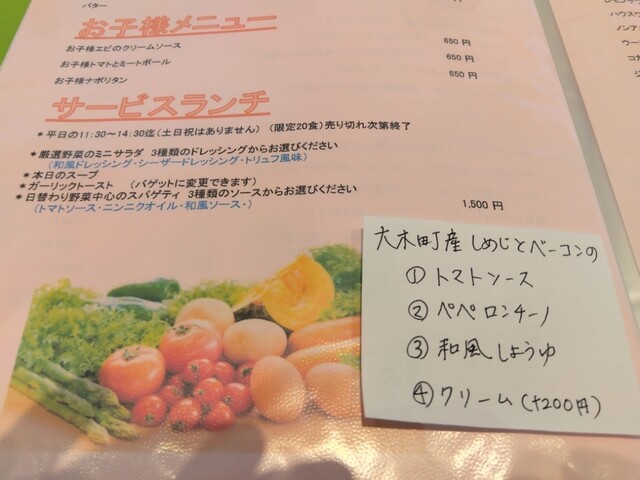 バター
お子様メニュー
お子様エビのクリームソース 650 円
お子様トマトとミートボール 650 円
お子様ナポリタン 650 円
サービスランチ
＊平日の11:30～14:30迄（土日祝はありません）（限定20食）売り切れ次第終了
＊厳選野菜のミニサラダ 3種類のドレッシングからお選びください
（和風ドレッシング・シーザードレッシング・トリュフ風味）
＊本日のスープ
＊ガーリックトースト （バゲットに変更できます）
＊日替わり野菜中心のスパゲティ 3種類のソースからお選びください
（トマトソース・ニンニクオイル・和風ソース・） 1,500 円
大木町産しめじとベーコンの
① トマトソース
② ペペロンチーノ
③ 和風しょうゆ
④ クリーム(+200円)
ハウスワ
ノンア
ウー
コカ